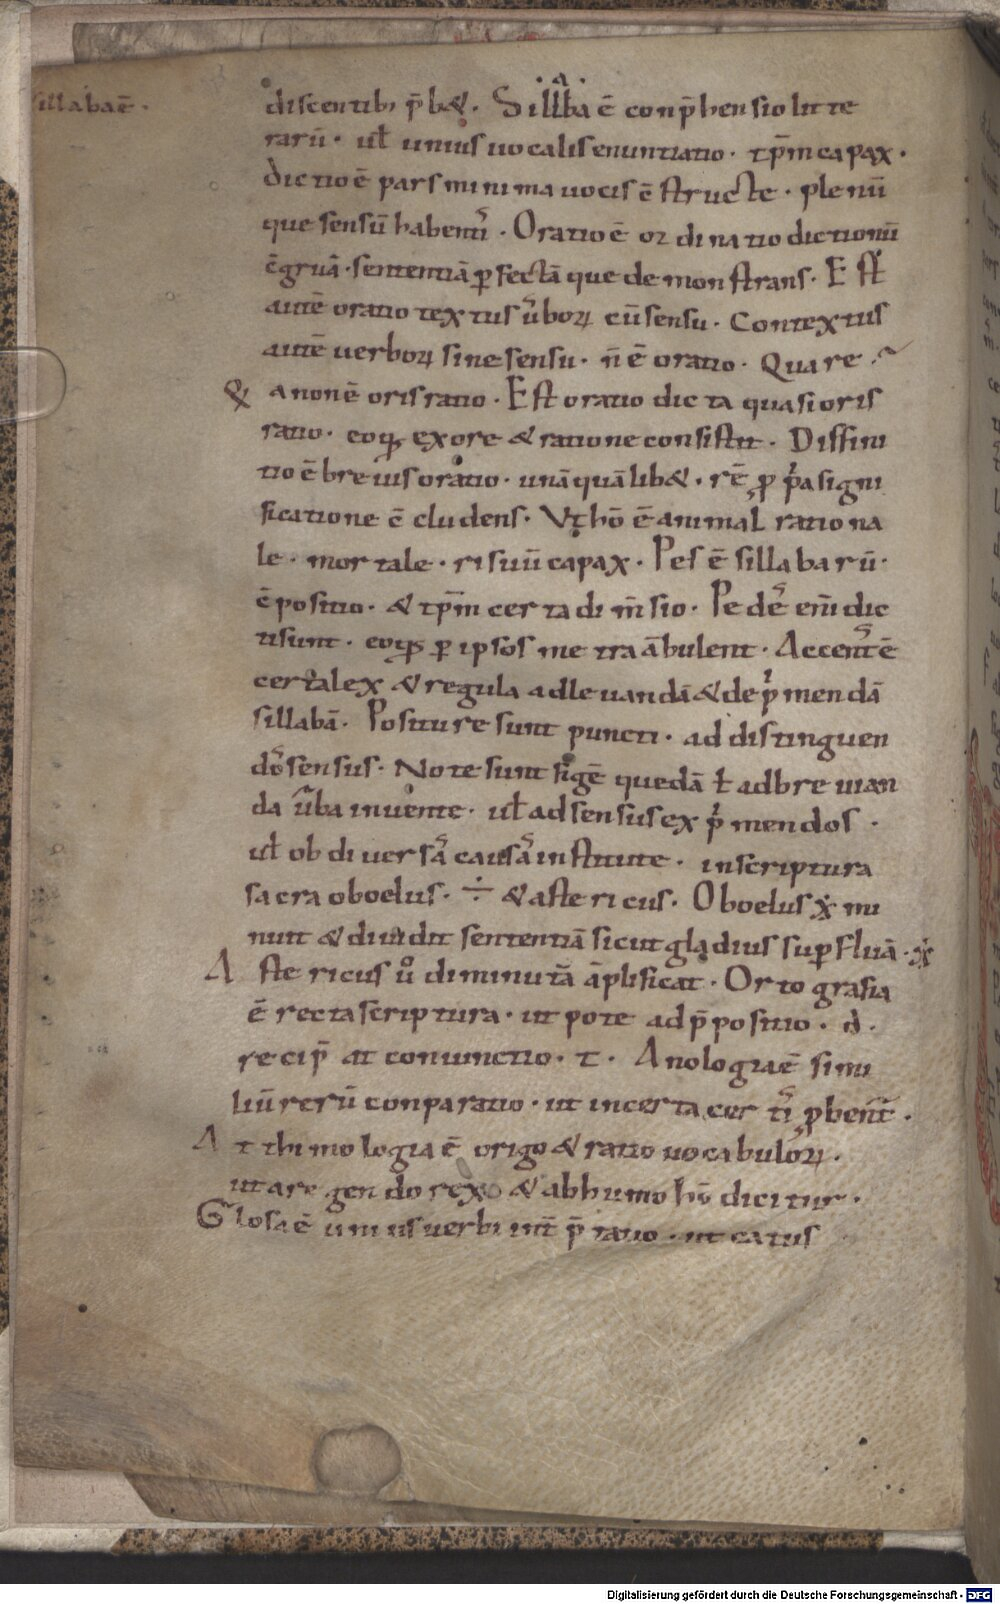 sillaba ē ·
discentib; p̄b& · Sill̇ᵃba ē conp̄hensio litte
rarū · ul̄ unius uocalis enuntiatio · tp̄m capax ·
dictio ē pars minima uocis ē structe · plenū
que sensū habenti᷑ · Oratio ē ordinatio dictionū
c̄gruā · sententiā ꝑfectā que demonstrans · Est᷑
autē oratio textus ūborꝝ cū sensu · Contextus
autē uerborꝝ sine sensu · n̄ ē oratio · Quare ·
& a non ē oris ratio · Est oratio dicta quasi oris
ratio · eoqꝫ ex ore & ratione consistit · Diffini
tio ē breuis oratio · unāquālib& · rē ꝓp̍a signi
ficatione c̄cludens · Vt hō ē animal rationa
le · mortale · risuū capax · Pes ē sillabarū ·
c̄positio · & tp̄m certa dim̄sio · Pedes᷑ enī dic
ti sunt · eoqꝫ ꝑ ipsos metra ābulent · Accent᷑ ē
certa lex & regula ad leuandā & dep̍mendā
sillabā · Positure sunt puncti · ad distinguen
dos᷑ sensus · Note sunt figē quedā ł ad breuian
da ūba inuente · ul̄ ad sensus exp̍mendos ·
ul̄ ob diuersā causā institute · in scriptura
sacra oboelus · ÷ & astericus · Oboelus ẋ mi
nuit & diuidit sententiā sicut gladius suꝑfluā · ẋ
Astericus ů diminutā āplificat · Ortografia
ē recta scriptura · ut pote ad p̄positio · d ·
recip̄ at coniunctio · t · Anologia ē simi
liū rerū conparatio · ut incerta certi᷑ ꝓbent᷑ ·
A tthimologia ē origo & ratio uocabulorꝝ ·
ut a regendo rex & ab humo hō dicitur ·
Glosa ē unius uerbi int̄p̄tatio · ut catus
Digitalisierung gefördert durch die Deutsche Forschungsgemeinschaft - DFG